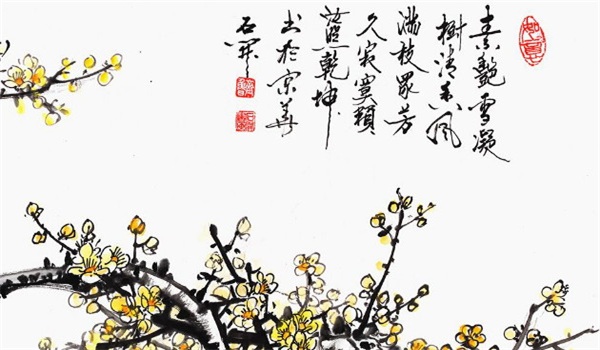 如意
素艷雪凝
樹清香風
滿枝眾芳
久寂寞賴
照乾坤
書於京華
石開